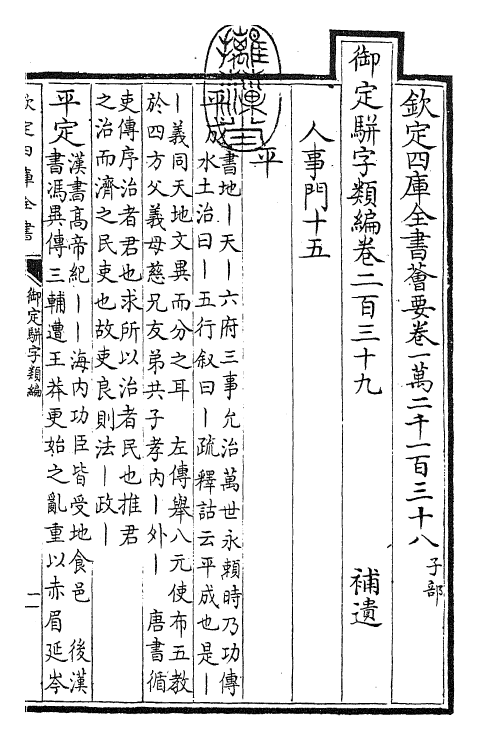 欽定四庫全書薈要卷一萬二千一百三十八子部
御定駢字類編卷二百三十九 補遺
人事門十五
平
平成書地丨天丨六府三事允治萬世永賴時乃功傳
水土治曰丨五行叙曰丨疏釋詁云平成也是丨
丨義同天地文異而分之耳 左傳舉八元使布五教
於四方父義母慈兄友弟共子孝内丨外丨 唐書循
吏傳序治者君也求所以治者民也推君
之治而濟之民吏也故吏良則法丨政丨
平定漢書高帝紀丨丨海内功臣皆受地食邑 後漢
書馮異傳三輔遭王莽更始之亂重以赤眉延岑
欽定四庫全書
御定駢字類編
一